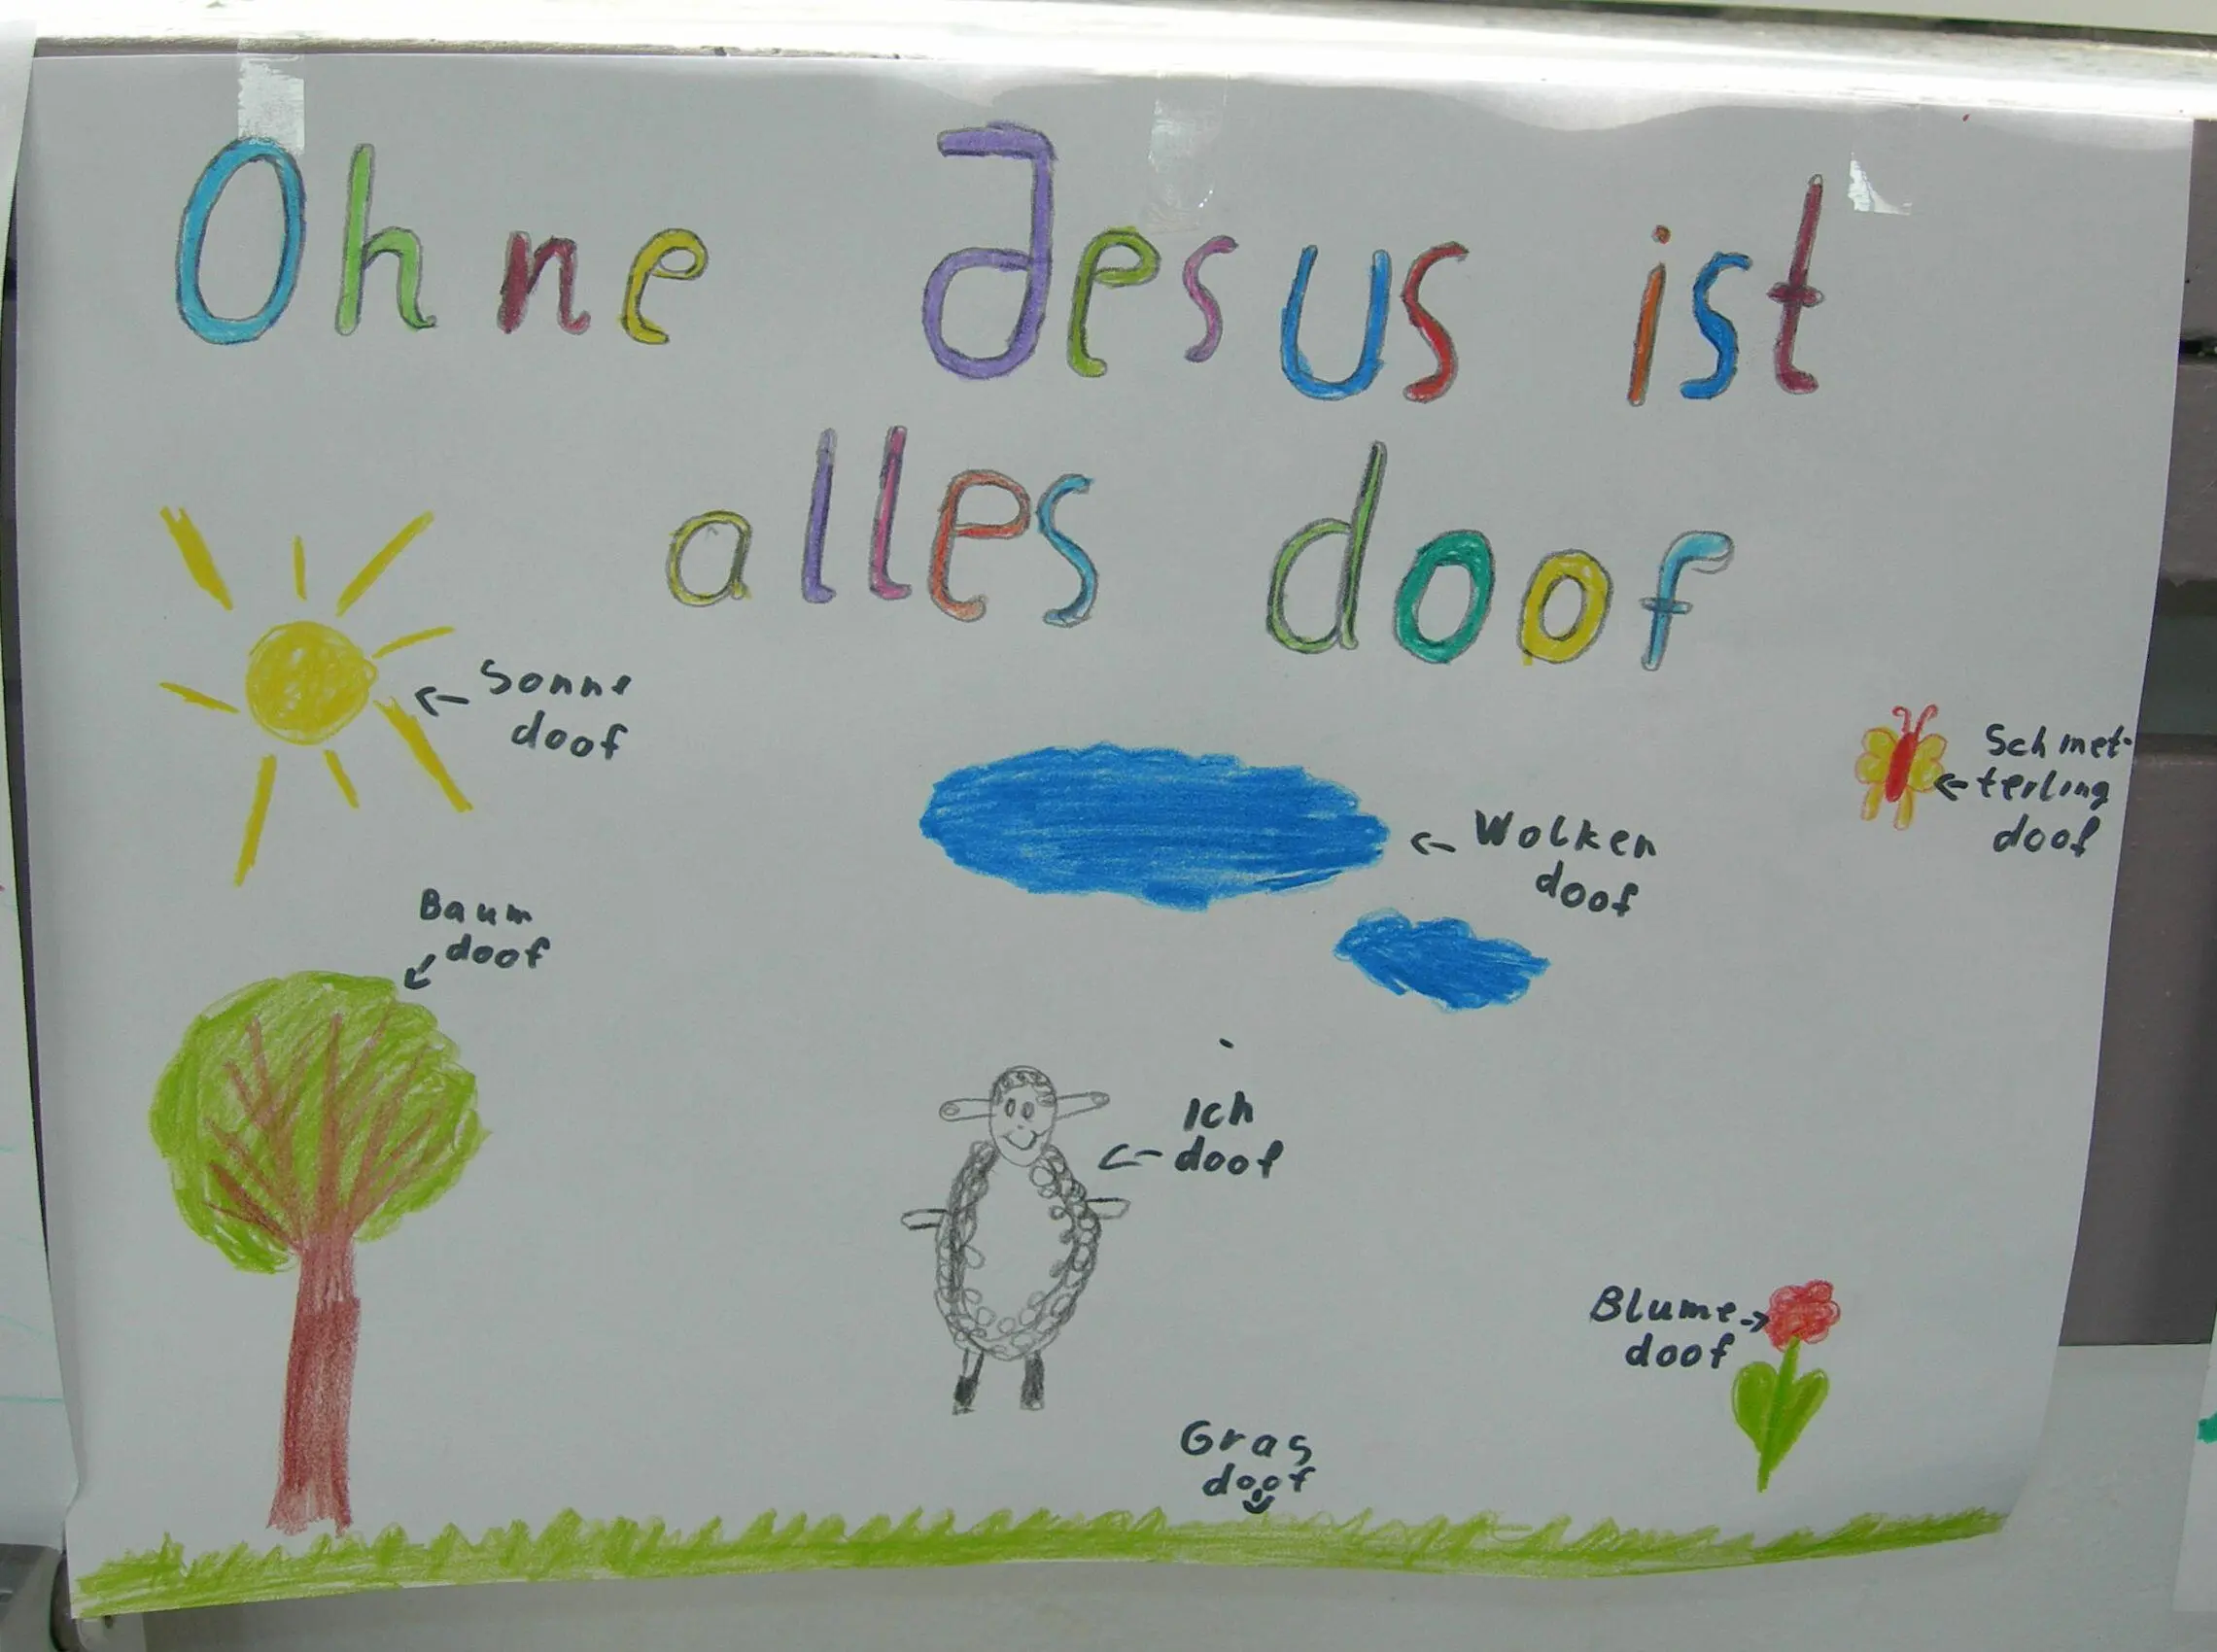 Ohne Jesus ist
alles doof
Sonne
doof
Schmet-
terling
doof
Wolken
doof
Baum
doof
Ich
doof
Blume
doof
Gras
doof